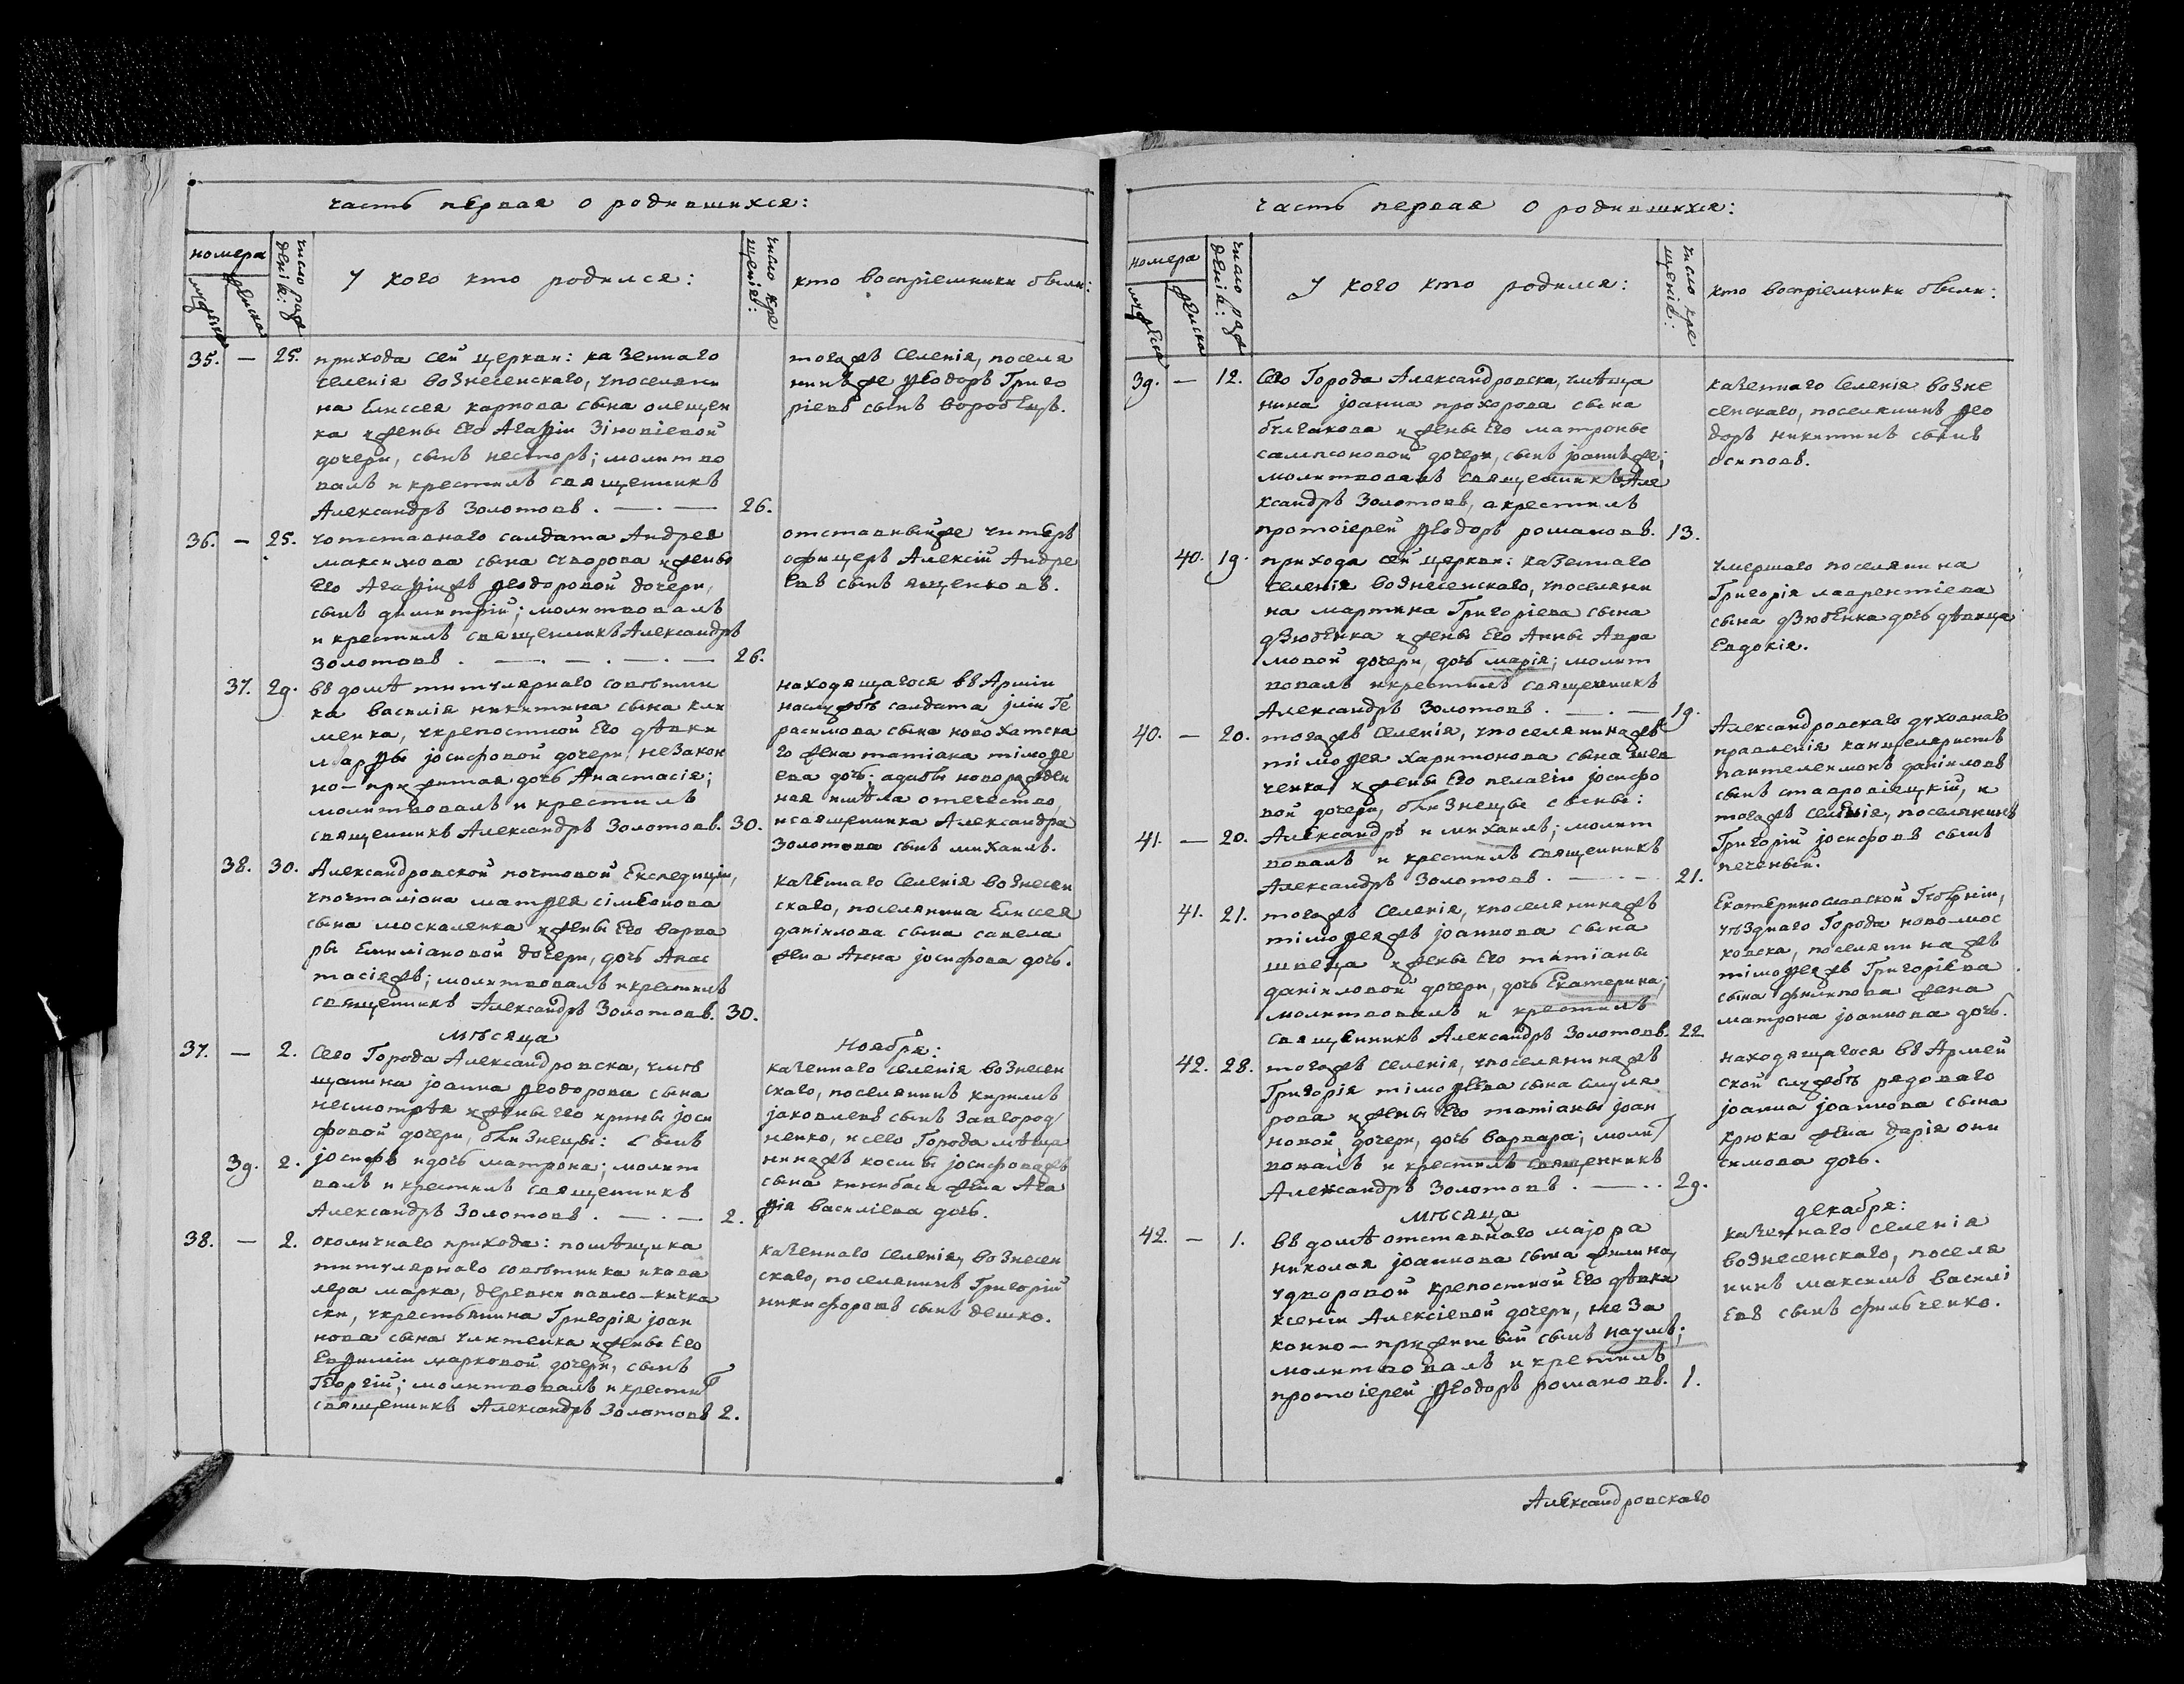 часть первая о родившихся:
номера
мужеска
женска
число рож
денія:
У кого кто родился:
число кре
щенія:
кто воспріемники были:
35. — 25. прихода сей церкви: казеннаго
селенія вознесенскаго, упоселяни
на Елиссея карпова сына олещен
ка ижены Его Агаѳіи Зіновіевой
дочери, сынъ несторъ; молитво
валъ и крестилъ священникъ
Александръ Золотовъ. — . — 26.
тогожъ Селенія, поселя
нинъже Ѳеодоръ Григо
ріевъ сынъ воробЕцъ.
36. — 25. уотставнаго салдата Андрея
максимова сына суворова ижены
Его Агаѳіижъ Ѳеодоровой дочери,
сынъ димитрій; молитвовалъ
и крестилъ священникъ Александръ
Золотовъ . — . — . — . — 26.
отставныйже унтеръ
офицеръ Алексій Андре
Евъ сынъ ященковъ.
37. 29. въ домѣ титулярнаго совѣтни
ка василія никитина сына кли
менка, укрепостной Его дѣвки
марѳы іосифовой дочери, незакон
но-прижитая дочь Анастасія;
молитвовалъ и крестилъ
священникъ Александръ Золотовъ. 30.
находящагося въ Арміи
наслужбѣ салдата іліи Ге
расимова сына новохатска
го жена татіана тімоѳе
ева дочь; адабы новорожден
ная имѣла отечество,
исвященника Александра
Золотова сынъ михаилъ.
38. 30. Александровской почтовой Експедиціи,
упочталіона матѳея сімеонова
сына москаленка ижены Его варва
ры Емиліановой дочери, дочь Анас
тасіяжъ; молитвовалъ икрестилъ
священникъ Александръ Золотовъ. 30.
казеннаго Селенія вознесен
скаго, поселянина Елиссея
даніилова сына савела
жена Анна іосифова дочь.
мѣсяца
Ноября:
37. — 2. Сего Города Александровска, умѣ
щанина іоанна Ѳеодорова сына
несмотрѣя ижены Его ирины іоси
фовой дочери, близнецы: Сынъ
39. 2. іосифъ идочь матрона; молит
валъ и крестилъ священникъ
Александръ Золотовъ . — . — 2.
казеннаго селенія вознесен
скаго, поселянинъ кирилъ
іаковлевъ сынъ Завгород
ненко, и сего Города мѣща
нинажъ космы іосифоважъ
сына кинибаса жена Ага
ѳія василіева дочь.
38. — 2. околичнаго прихода: помѣщика
титулярнаго совѣтника икава
лера марка, деревни павло-кичка
ски, укрестьянина Григорія іоан
нова сына улитенка ижены Его
Евѳиміи марковой дочери, сынъ
Георгій; молитвовалъ и крестил
священникъ Александръ Золотовъ 2.
казеннаго селенія, вознесен
скаго, поселянинъ Григорій
никифоровъ сынъ дешко.
часть первая о родившихся:
номера
мужеска
женска
число рож
денія:
У кого кто родился:
число кре
щенія:
кто воспріемники были:
39. — 12. Сего Города Александровска, умѣща
нина іоанна прохорова сына
булгакова ижены Его матроны
сампсоновой дочери, сынъ іоаннъже;
молитвовалъ священникъ Але
ксандръ Золотовъ, акрестилъ
протоіерей Ѳеодоръ романовъ. 13.
казеннаго Селенія возне
сенскаго, поселянинъ Ѳео
доръ никитинъ сынъ
осиповъ.
40. 19. прихода сей церкви: казеннаго
селенія вознесенскаго, упоселяни
на мартина Григоріева сына
дзюбЕнка ижены Его Анны Авра
мовой дочери, дочь марія; молит
вовалъ икрестилъ священникъ
Александръ Золотовъ . — . — 19.
умершаго поселянина
Григорія лаврентіева
сына дзюбЕнка дочь дѣвица
Евдокія.
40. — 20. тогожъ Селенія, упоселянинажъ
тімоѳея харитонова сына шев
ченка ижены Его пелагіи іосифо
вой дочери, близнецы сыны:
41. — 20. Александръ и михаилъ; молит
вовалъ и крестилъ священникъ
Александръ Золотовъ . — . — 21.
Александровскаго духовнаго
правленія канцеляристъ
пантелеимонъ даніиловъ
сынъ ставровіецкій, и
тогожъ селЕнія, поселянинъ
Григорій іосифовъ сынъ
печеный.
41. 21. тогожъ Селенія, упоселянинажъ
тімоѳеяжъ іоаннова сына
швеца ижены Его татіаны
даніиловой дочери, дочь Екатерина;
молитвовалъ и крестилъ
священникъ Александръ Золотовъ. 22
Екатеринославской Губерніи,
уѣзднаго Города новомос
ковска, поселянинажъ
тімоѳеяжъ Григоріева
сына филипова жена
матрона іоаннова дочь.
42. 28. тогожъ селенія, упоселянинажъ
Григорія тімоѳеева сына слуля
рова ижены Его татіаны іоан
новой дочери, дочь варвара; молит
вовалъ и крестилъ священникъ
Александръ Золотовъ . — . . 29.
находящагося въ Армей
ской службѣ рядоваго
іоанна іоаннова сына
крюка жена дарія они
симова дочь.
мѣсяца
декабря:
42. — 1. въ домѣ отставнаго маіора
николая іоаннова сына филина,
удворовой крепостной Его дѣвки
ксеніи Алексіевой дочери, неза
конно-прижитый сынъ наумъ;
молитвовалъ и крестилъ
протоіерей Ѳеодоръ романовъ. 1.
казеннаго селенія
вознесенскаго, поселя
нинъ максимъ василі
Евъ сынъ фильченко.
Александровскаго